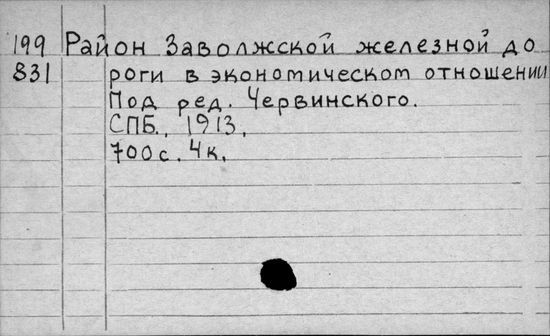 199 Район Заволжской железной до
831 роги в экономическом отношении
Под ред. Червинского.
СПБ., 1913.
700с. 4к.